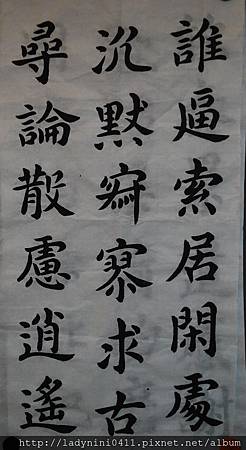 誰逼索居閑處
沉默寂寥求古
尋論散慮逍遙
http://ladynini0411.pixnet.net/album